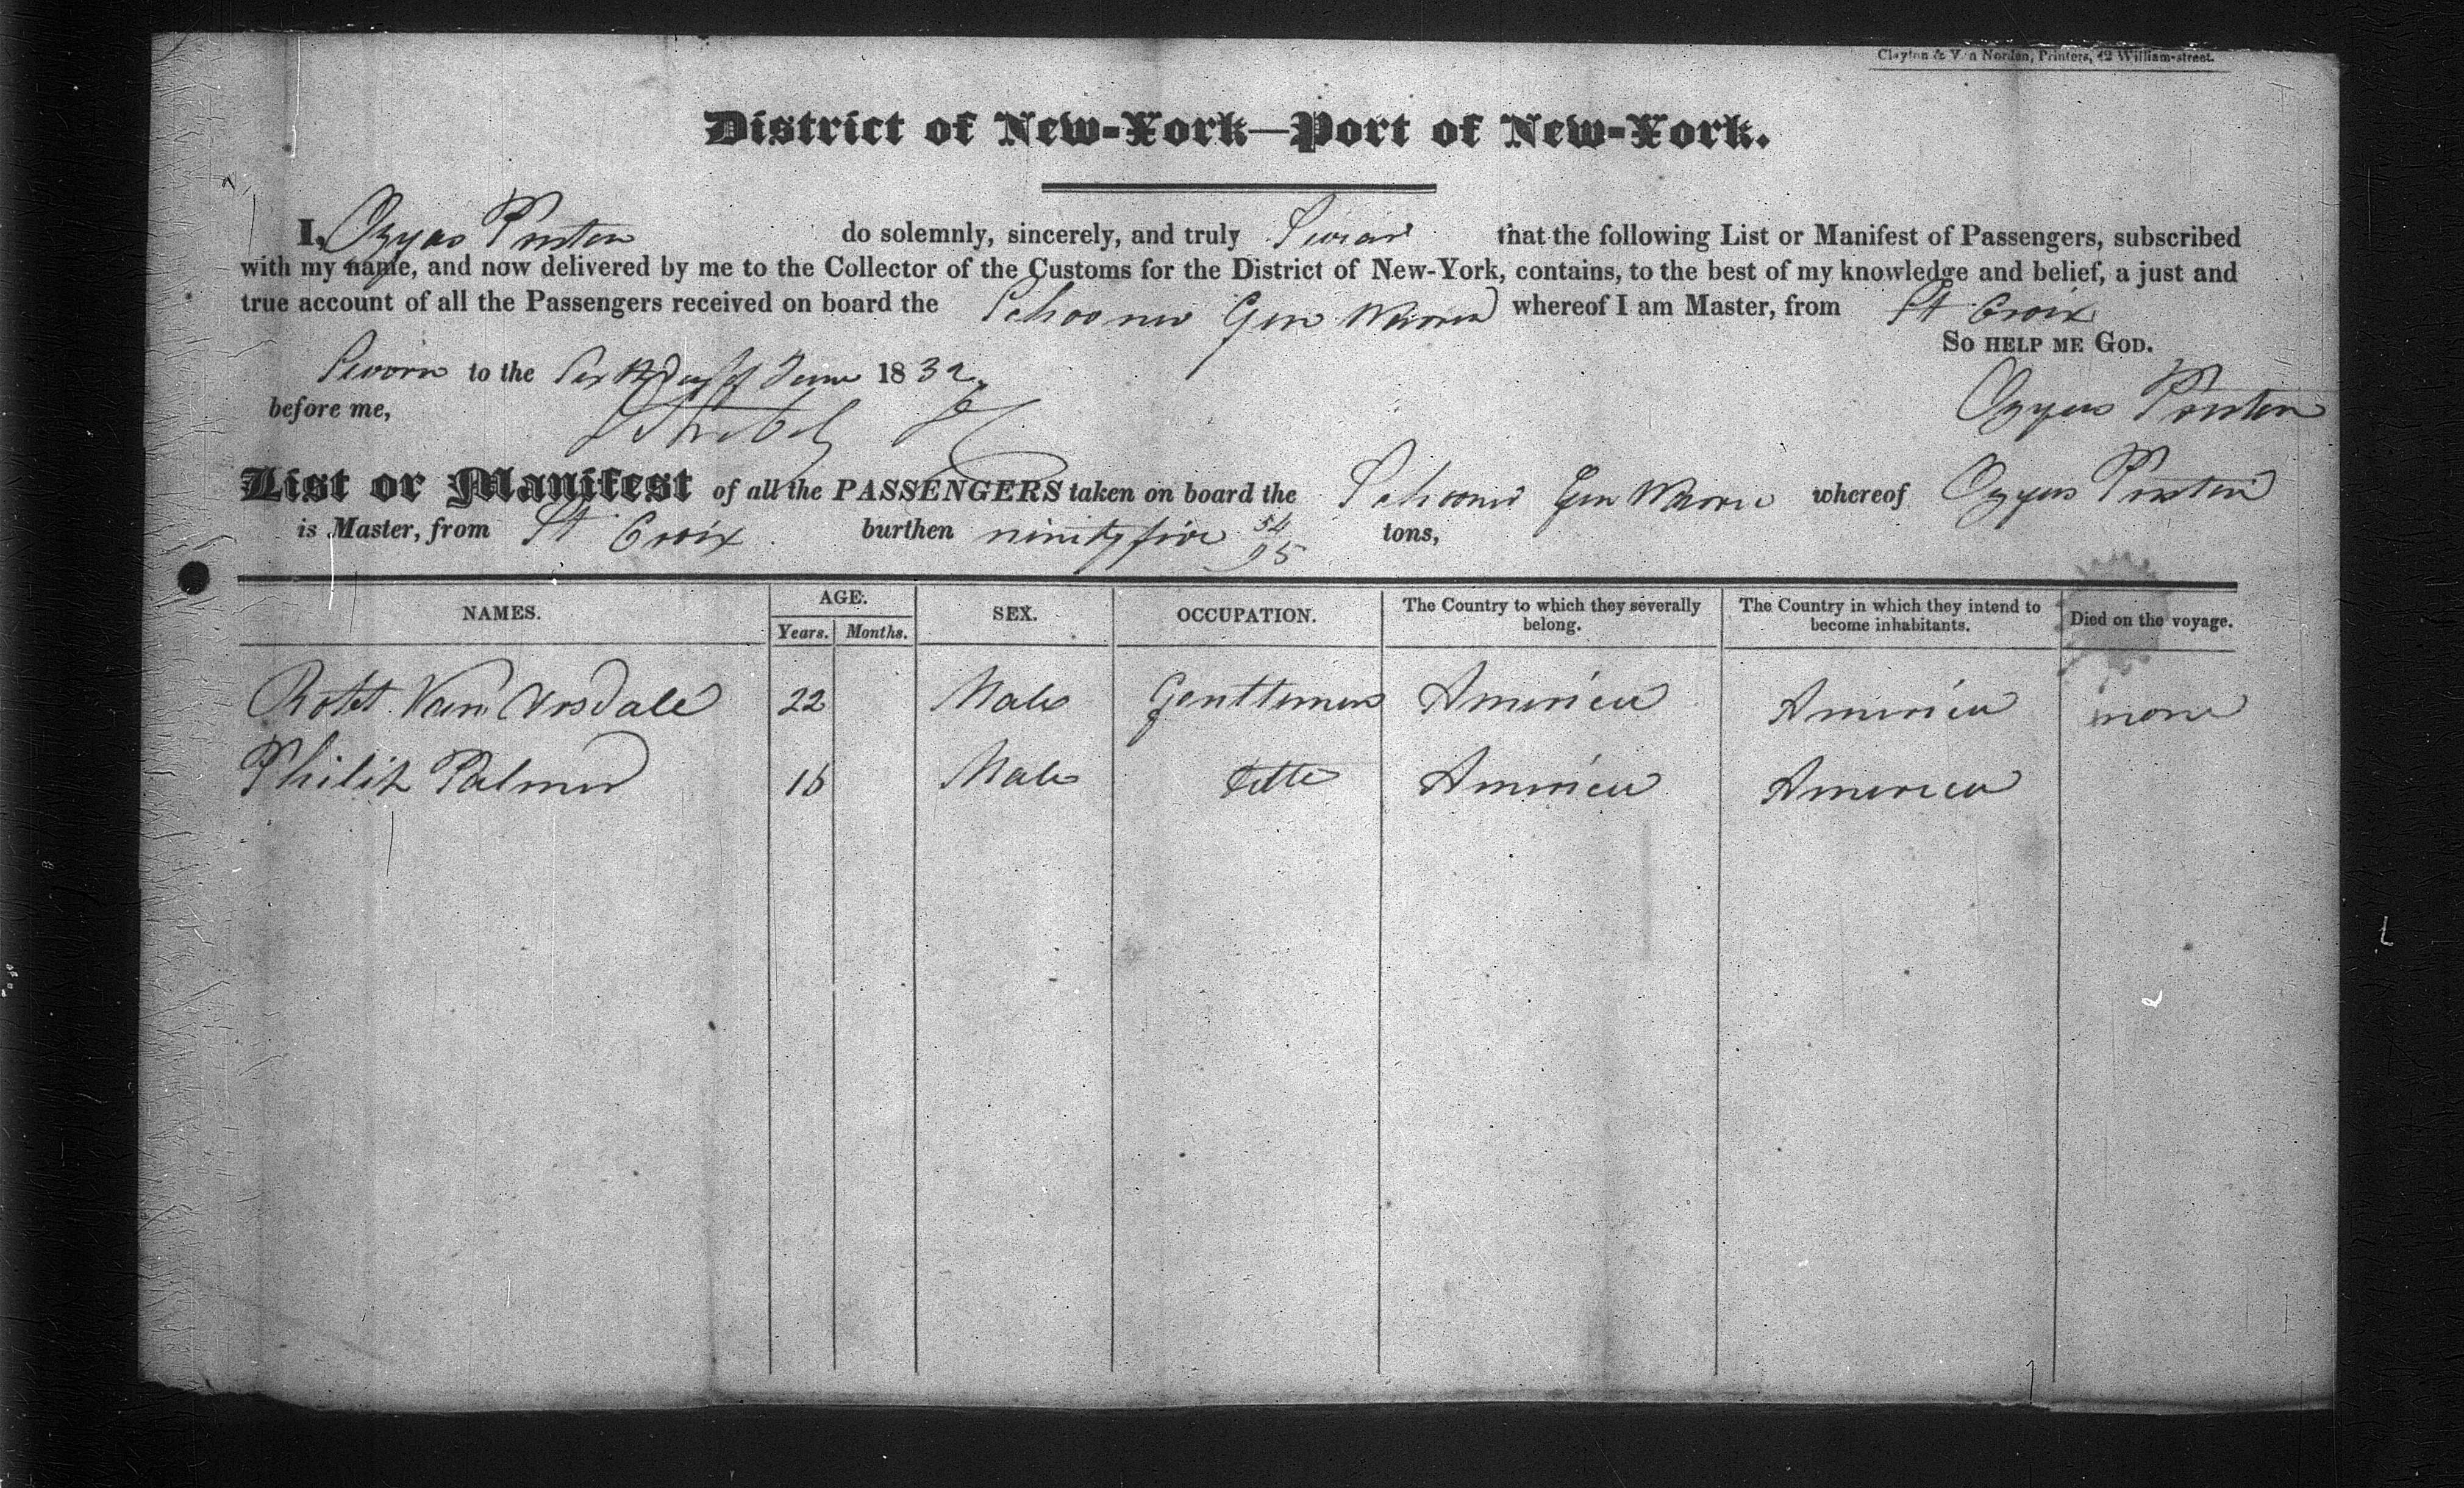 Clayton & Van Norden, Printers, 42 William-street.
District of New-York—Port of New-York.
I, Ozyas Preston do solemnly, sincerely, and truly Swear that the following List or Manifest of Passengers, subscribed
with my name, and now delivered by me to the Collector of the Customs for the District of New-York, contains, to the best of my knowledge and belief, a just and
true account of all the Passengers received on board the Schooner Gen Warren whereof I am Master, from St Croix
So help me God.
Sworn to the Sixth Day of June 1832
before me, Ozyas Preston
List or Manifest of all the PASSENGERS taken on board the Schooner Gen Warren whereof Ozyas Preston
is Master, from St Croix burthen ninety five 54/95 tons,
NAMES. AGE. Years. Months. SEX. OCCUPATION. The Country to which they severally belong. The Country in which they intend to become inhabitants. Died on the voyage.
Robt Van Arsdale 22 Male Gentleman America America none
Philip Palmer 16 Male ditto America America